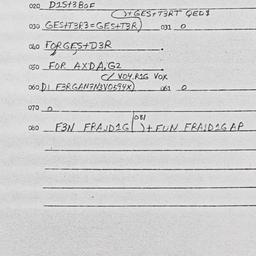 020 D1St3BoF
()+GES+T3RT QED$
030 GES+T3R3=GES+T3R) 031 0
040 FORGES+D3R
050 FOR AXDA.G2
C/ V04.R1G VOX
060 DI F3RGAN7N3V0594X) 061 0
070 0
081
080 F3N FRAJD1G( )+FUN FRAID1GAP